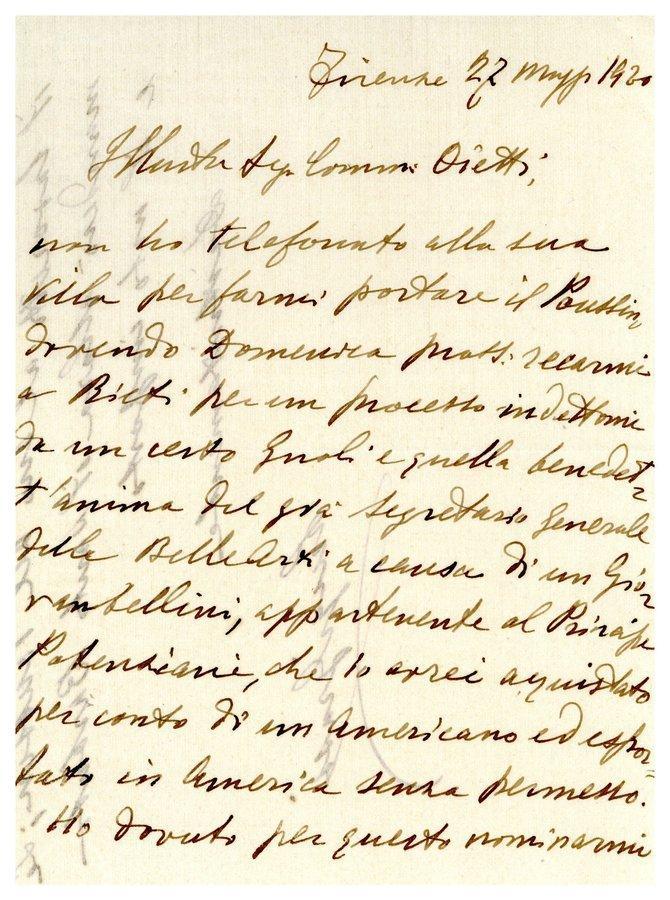 Firenze 22 Magg 1920
Illustre Sig. Comm. Oietti,
non ho telefonato alla sua
villa per farmi portare il Poussin,
dovendo Domenica pross: recarmi
a Rieti per un processo indettomi
da un certo Gnoli e quella benedet-
t'anima del già Segretario Generale
delle Belle Arti a causa di un Gio-
van bellini, appartenente al Principe
Potenziani, che io avrei acquistato
per conto di un Americano ed espor-
tato in America senza permesso.
Ho dovuto per questo nominarmi